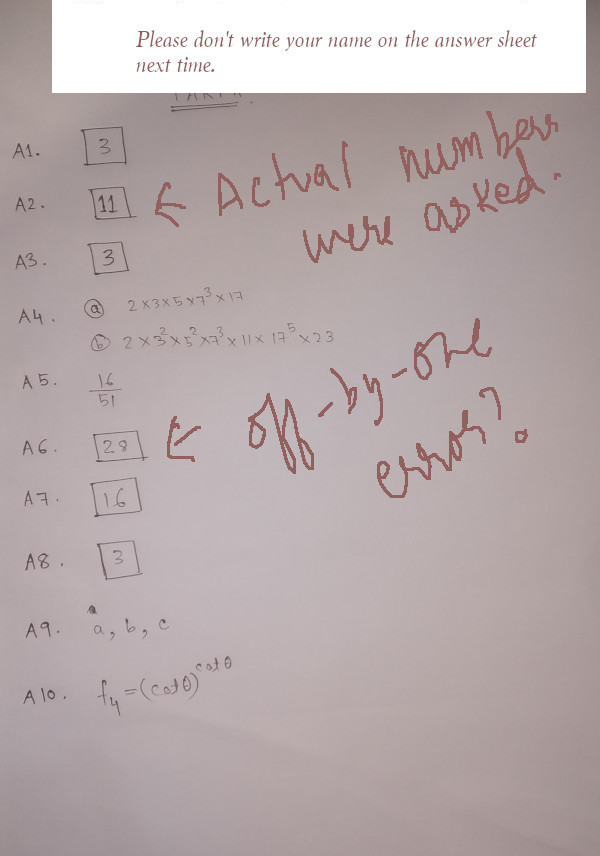 Please don't write your name on the answer sheet
next time.
PART A.
A1. 3
A2. 11 ← Actual numbers
were asked.
A3. 3
A4. (a) 2×3×5×7³×17
(b) 2×3²×5²×7³×11×17⁵×23
A5. 16/51
A6. 28 ← off-by-one
error?
A7. 16
A8. 3
A9. a, b, c
A10. f₄=(cotθ)^cotθ